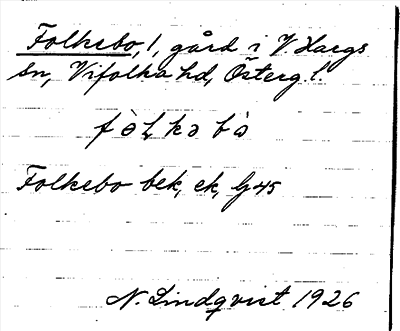 Folkebo, 1, gård i V Hargs
Sn, Vifolka hd, Österg. l.
fòḷkə bò
Folkebo bek, ek, G 45
N. Lindqvist 1926